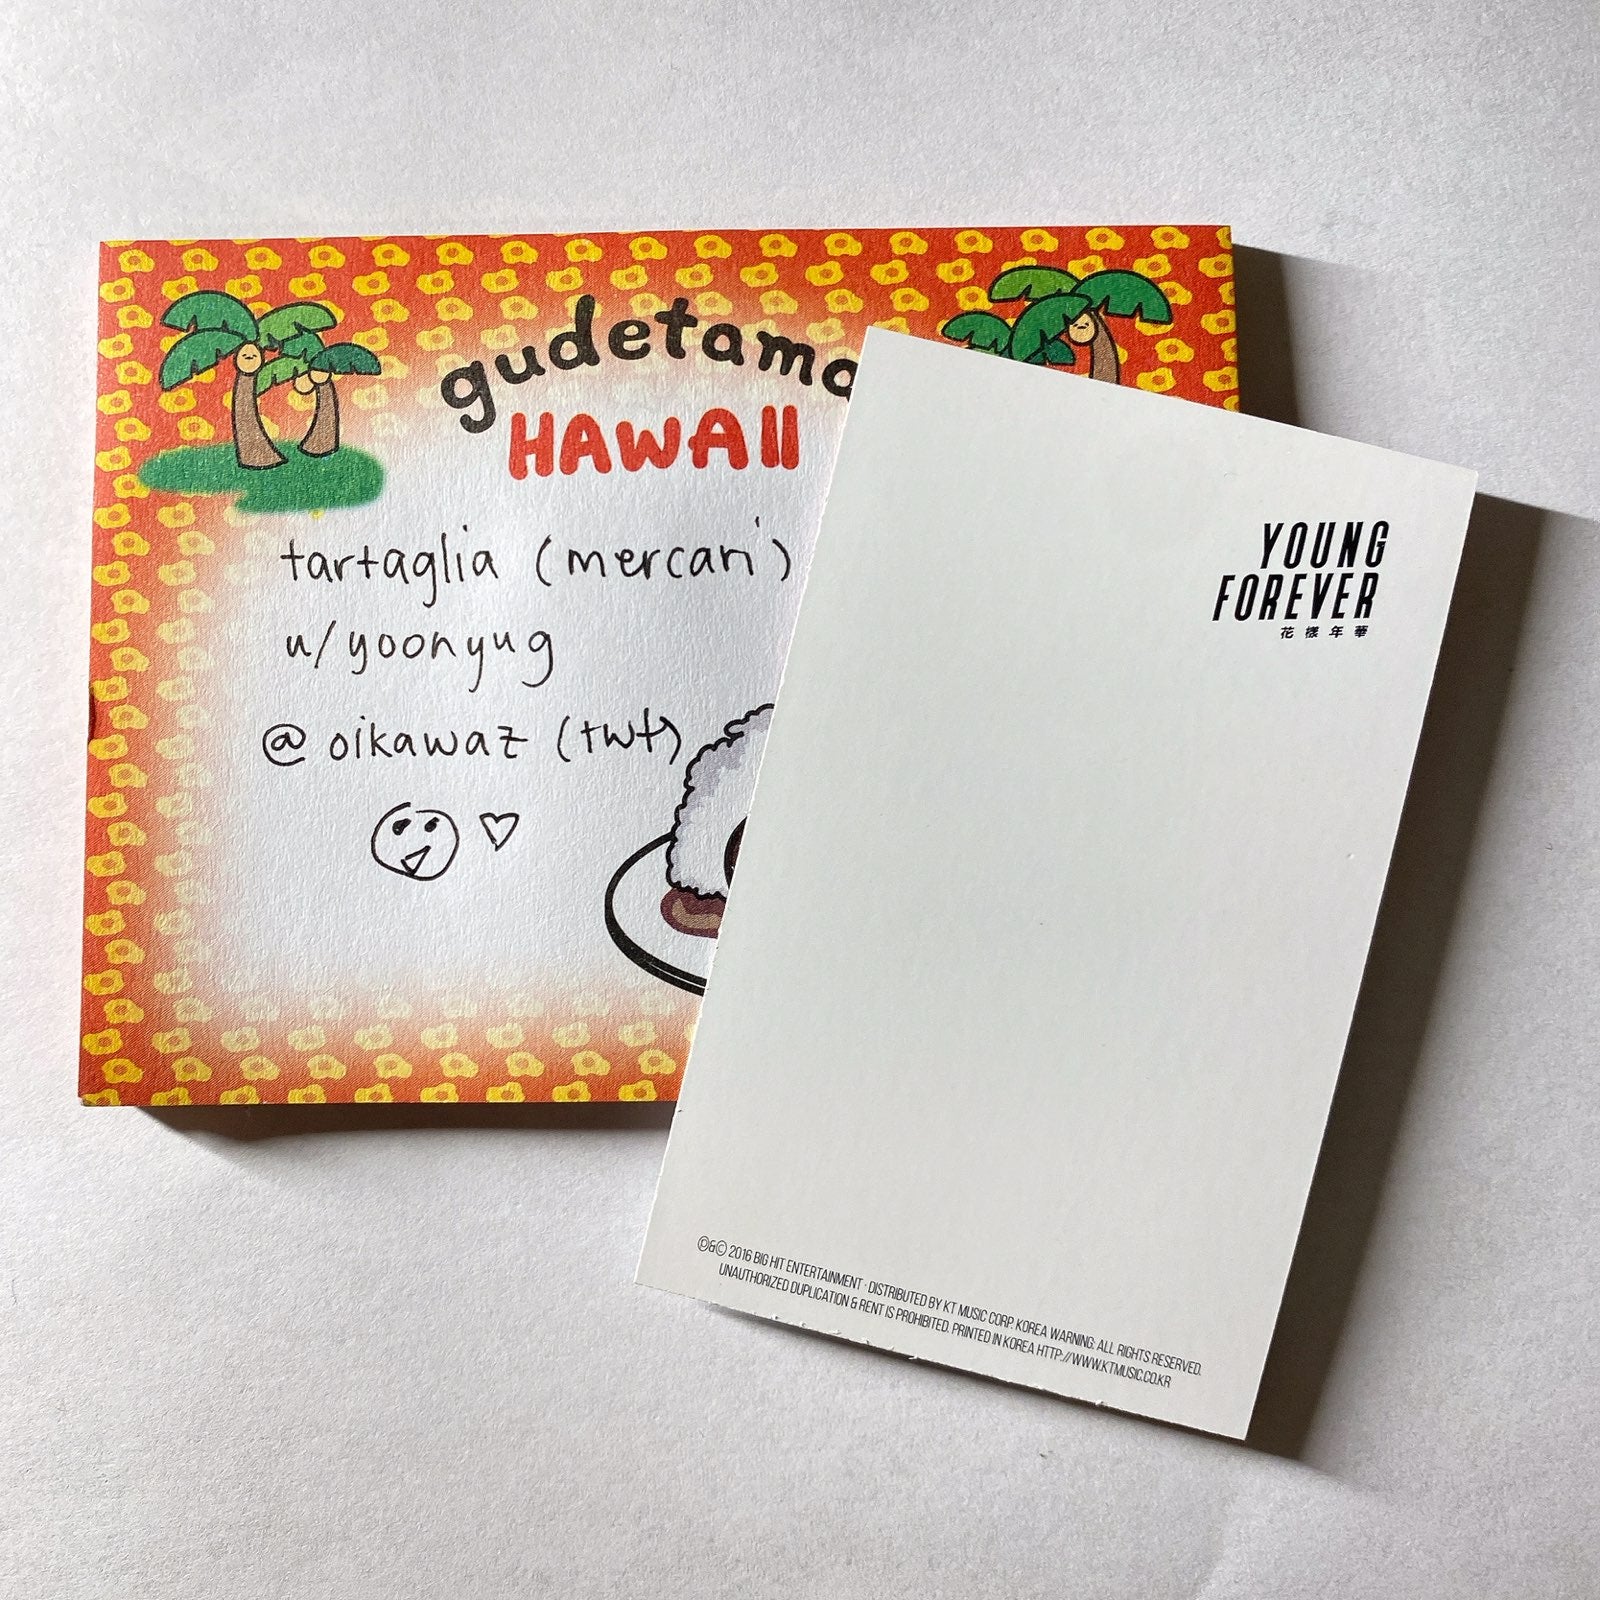 gudetama
HAWAII
tartaglia (mercari)
u/yoonyug
@oikawaz (twt)
YOUNG
FOREVER
花樣年華
℗&© 2016 BIG HIT ENTERTAINMENT · DISTRIBUTED BY KT MUSIC CORP. KOREA WARNING: ALL RIGHTS RESERVED.
UNAUTHORIZED DUPLICATION & RENT IS PROHIBITED. PRINTED IN KOREA HTTP://WWW.KTMUSIC.CO.KR